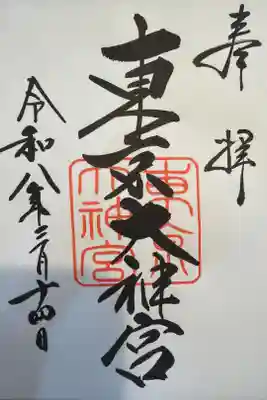 奉拝
東京大神宮
東京大神宮
令和八年二月十四日